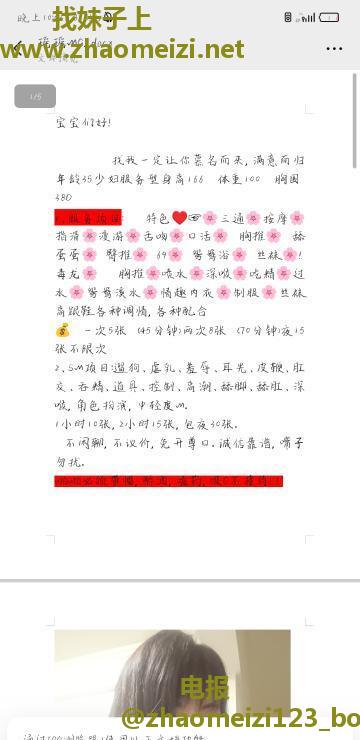 找妹子上
晚上10
www.zhaomeizi.net
1/5
宝宝们好!
找我一定让你慕名而来,满意而归
年龄35少妇服务型身高166 体重100 胸围
38D
1,服务项目: 特色❤️👉🌸三通🌸按摩🌸
指滑🌸漫游🌸舌吻🌸口活🌸 胸推🌸 舔
蛋蛋🌸 臀推🌸 69🌸 鸳鸯浴🌸 丝袜🌸!
毒龙🌸 胸推🌸喷水🌸深喉🌸吃精🌸过
水🌸鸳鸯戏水🌸情趣内衣🌸制服🌸丝袜
高跟鞋各种调情,各种配合
💰 一次5张 (45分钟)两次8张 (70分钟)夜15
张不限次
2,SM项目遛狗、虐乳、羞辱、耳光、皮鞭、肛
交、吞精、道具、控制、高潮、舔脚、舔肛、深
喉,角色扮演,中轻度M.
1小时10张,2小时15张,包夜30张.
不闲聊,不议价,免开尊口.诚信靠谱,嘴子
勿扰.
电报
@zhaomeizi123_bo